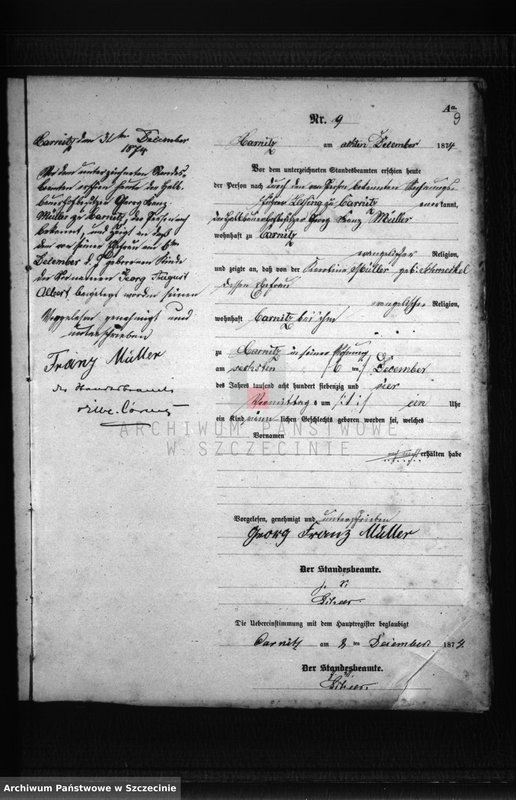 9
Nr. 9
Carnitz am achten December 1874
Vor dem unterzeichneten Standesbeamten erschien heute
der Person nach durch den
zu Carnitz anerkannt,
Georg Franz Müller
wohnhaft zu Carnitz
evangelischer Religion,
und zeigte an, daß von der Karoline Müller geb.
dessen Ehefrau
evangelischer Religion,
wohnhaft Carnitz bei ihm
zu Carnitz in seiner Wohnung
am sechsten 6 ten December
des Jahres tausend acht hundert siebenzig und vier
Vormittag s um ein Uhr
ein Kind männ lichen Geschlechts geboren worden sei, welches
Vornamen
noch nicht erhalten habe
Vorgelesen, genehmigt und unterschrieben
Georg Franz Müller
Der Standesbeamte.
Die Uebereinstimmung mit dem Hauptregister beglaubigt
Carnitz am 8 ten December 1874.
Der Standesbeamte.
Carnitz den 31 ten December
1874
Vor dem unterzeichneten Standes-
beamten erschien heute der Halb-
Georg Franz
Müller zu Carnitz, der Person nach
bekannt, und zeigt an daß
dem von seiner Ehefrau am 6ten
December d. J. geborenen Kinde
die Vornamen Georg August
Albert beigelegt worden seien
Vorgelesen genehmigt und
unterschrieben
Franz Müller
der Standesbeamte
ARCHIWUM PAŃSTWOWE
W SZCZECINIE
Archiwum Państwowe w Szczecinie